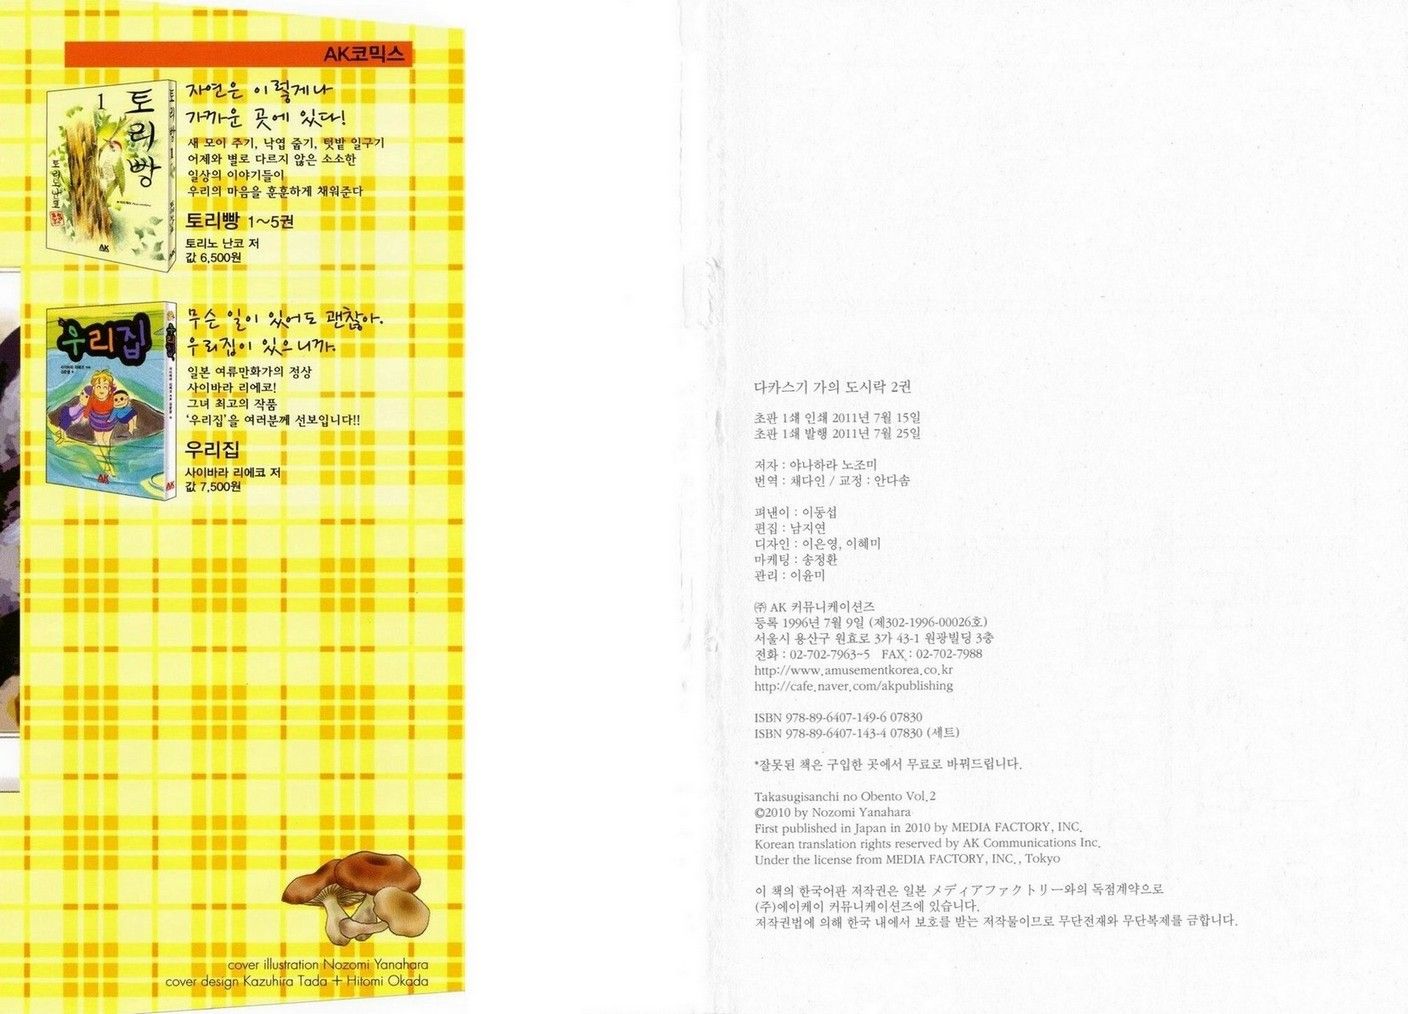 AK코믹스
토리빵
1
토리노 난코
AK
자연은 이렇게나
가까운 곳에 있다!
새 모이 주기, 낙엽 줍기, 텃밭 일구기
어제와 별로 다르지 않은 소소한
일상의 이야기들이
우리의 마음을 훈훈하게 채워준다
토리빵 1~5권
토리노 난코 저
값 6,500원
우리집
AK
무슨 일이 있어도 괜찮아.
우리집이 있으니까.
일본 여류만화가의 정상
사이바라 리에코!
그녀 최고의 작품
‘우리집’을 여러분께 선보입니다!!
우리집
사이바라 리에코 저
값 7,500원
cover illustration Nozomi Yanahara
cover design Kazuhira Tada + Hitomi Okada
다카스기 가의 도시락 2권
초판 1쇄 인쇄 2011년 7월 15일
초판 1쇄 발행 2011년 7월 25일
저자 : 야나하라 노조미
번역 : 채다인 / 교정 : 안다솜
펴낸이 : 이동섭
편집 : 남지연
디자인 : 이은영, 이혜미
마케팅 : 송정환
관리 : 이윤미
㈜ AK 커뮤니케이션즈
등록 1996년 7월 9일 (제302-1996-00026호)
서울시 용산구 원효로 3가 43-1 원광빌딩 3층
전화 : 02-702-7963~5 FAX : 02-702-7988
http://www.amusementkorea.co.kr
http://cafe.naver.com/akpublishing
ISBN 978-89-6407-149-6 07830
ISBN 978-89-6407-143-4 07830 (세트)
*잘못된 책은 구입한 곳에서 무료로 바꿔드립니다.
Takasugisanchi no Obento Vol.2
©2010 by Nozomi Yanahara
First published in Japan in 2010 by MEDIA FACTORY, INC.
Korean translation rights reserved by AK Communications Inc.
Under the license from MEDIA FACTORY, INC., Tokyo
이 책의 한국어판 저작권은 일본 メディアファクトリー와의 독점계약으로
(주)에이케이 커뮤니케이션즈에 있습니다.
저작권법에 의해 한국 내에서 보호를 받는 저작물이므로 무단전재와 무단복제를 금합니다.